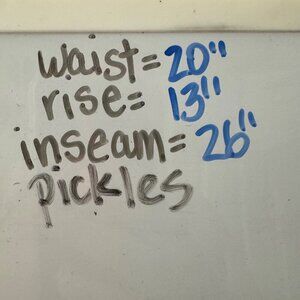 waist= 20"
rise= 13"
inseam= 26"
pickles